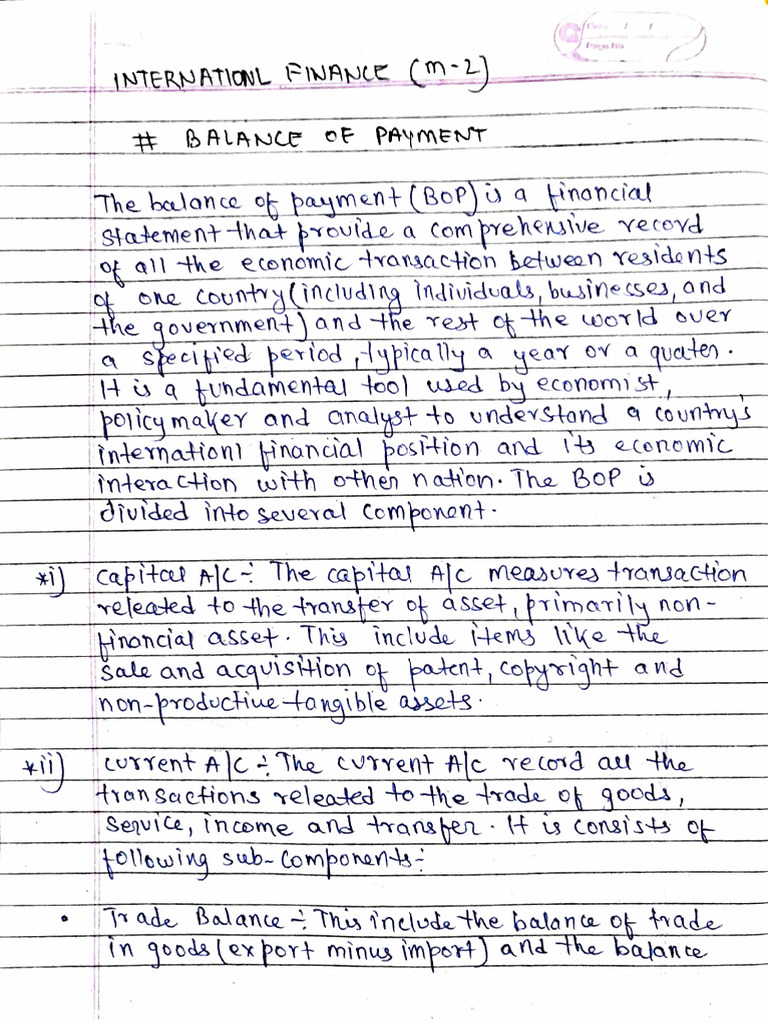 Page No
INTERNATIONL FINANCE (M-2)
# BALANCE OF PAYMENT
The balance of payment (BOP) is a financial
statement that provide a comprehensive record
of all the economic transaction between residents
of one country (including individuals, businesses, and
the government) and the rest of the world over
a specified period, typically a year or a quater.
It is a fundamental tool used by economist,
policymaker and analyst to understand a country's
internationl financial position and its economic
interaction with other nation. The BOP is
divided into several component.
*i) Capital A/C ÷ The capital A/C measures transaction
releated to the transfer of asset, primarily non-
financial asset. This include items like the
sale and acquisition of patent, copyright and
non-productive tangible assets.
*ii) Current A/C ÷ The current A/C record all the
transactions releated to the trade of goods,
service, income and transfer. It is consists of
following sub-components ÷
• Trade Balance ÷ This include the balance of trade
in goods (export minus import) and the balance